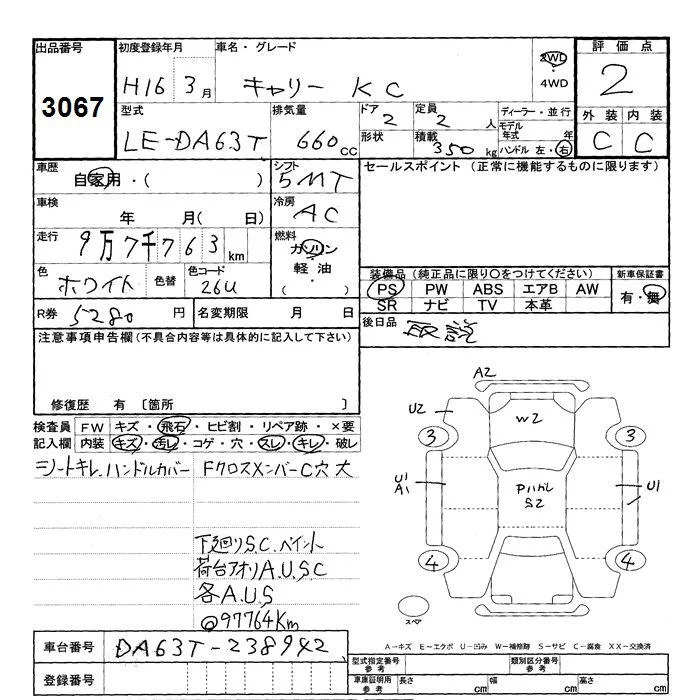 出品番号 初度登録年月 車名・グレード 2WD 評価点
3067 H16 3月 キャリー KC 4WD 2
型式 排気量 ドア 定員 ディーラー・並行 外装 内装
LE-DA63T 660cc 2 2人 モデル年式 年 C C
形状 積載 350kg ハンドル 左・右
車歴 シフト セールスポイント (正常に機能するものに限ります)
自家用・( ) 5MT
車検 冷房
年 月( 日) AC
走行 燃料
9万7千763km ガソリン
軽油・
( )
色 色替 色コード
ホワイト 26U
装備品 (純正品に限り○をつけてください) 新車保証書
PS PW ABS エアB AW 有・無
SR ナビ TV 本革
R券 5280円 名変期限 月 日 後日品 取説
注意事項申告欄(不具合内容等は具体的に記入して下さい)
修復歴 有 〔箇所 〕
検査員 FW キズ・飛石・ヒビ割・リペア跡・×要
記入欄 内装 キズ・汚レ・コゲ・穴・スレ・キレ・破レ
シートキレ.ハンドルカバー FクロスメンバーC穴大
下廻りS.C.ペイント
荷台アオリA.U.S.C
各A.U.S
@97764Km
A2
U2
W2
3 3
U1
A1
Pハガレ
S2
U1
4 4
スペア
A-キズ E-エクボ U-凹み W-補修跡 S-サビ C-腐食 XX-交換済
車台番号 DA63T-238942
登録番号
型式指定番号 参考 類別区分番号 参考
車庫証明用 参考 長さ cm 幅 cm 高さ cm